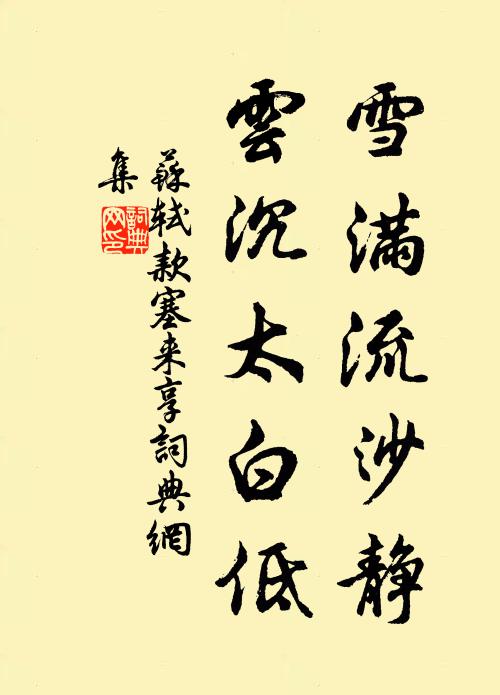 雪滿流沙静
雲沉太白低
蘇軾款塞来享詞典網
集
詞典网印